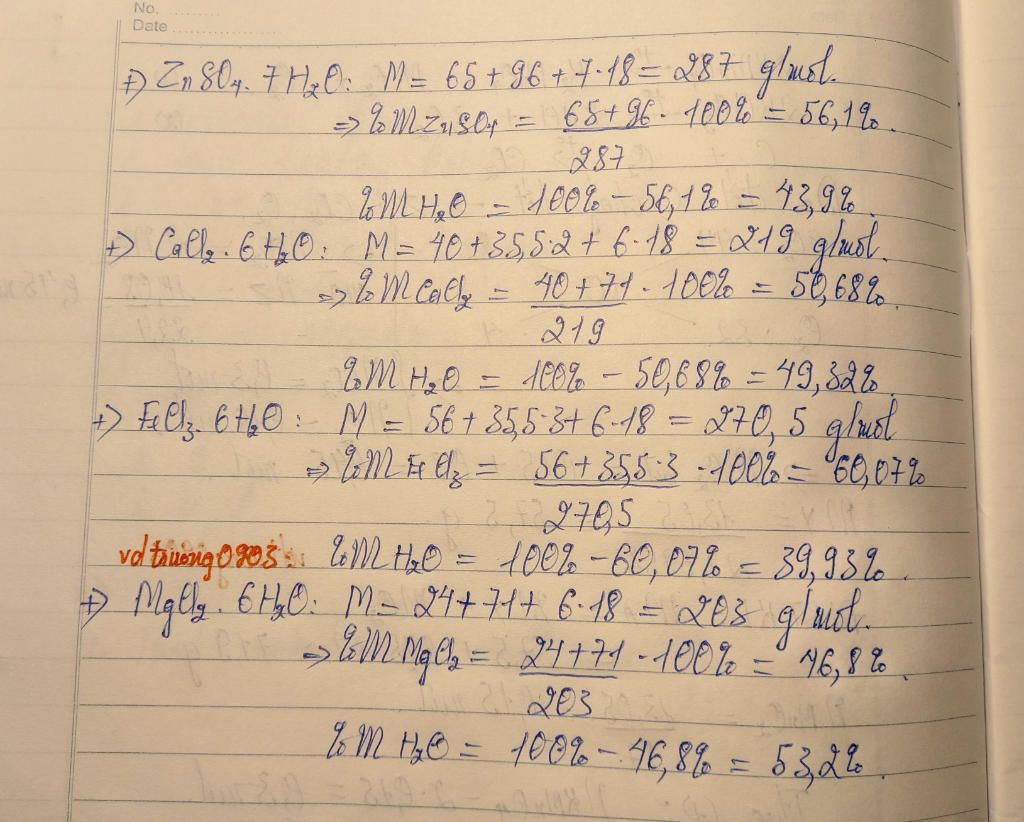 No. ...........
Date .....................
+) ZnSO4. 7H2O: M = 65 + 96 + 7·18 = 287 g/mol.
=> %mZnSO4 = 65+96 · 100% = 56,1%.
287
%mH2O = 100% - 56,1% = 43,9%.
+) CaCl2. 6H2O: M = 40 + 35,5·2 + 6·18 = 219 g/mol.
=> %mCaCl2 = 40+71 · 100% = 50,68%.
219
%mH2O = 100% - 50,68% = 49,32%.
+) FeCl3. 6H2O: M = 56 + 35,5·3 + 6·18 = 270,5 g/mol
=> %mFeCl3 = 56+35,5·3 · 100% = 60,07%
270,5
vdtruong0903: %mH2O = 100% - 60,07% = 39,93%.
+) MgCl2. 6H2O: M = 24 + 71 + 6·18 = 203 g/mol.
=> %mMgCl2 = 24+71 · 100% = 46,8%.
203
%mH2O = 100% - 46,8% = 53,2%.